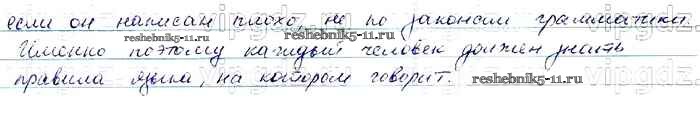 если он написан плохо, не по законам грамматики.
Именно поэтому каждый человек должен знать
правила языка, на котором говорит.
reshebnik5-11.ru
reshebnik5-11.ru
reshebnik5-11.ru
vipgdz.com